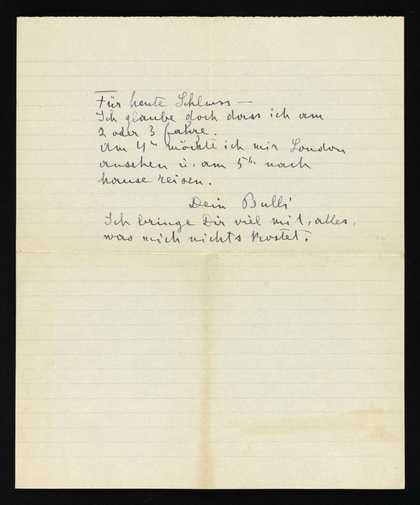 Für heute Schluss —
Ich glaube doch dass ich am
2 oder 3 fahre.
Am 4ᵗᵉⁿ möchte ich mir London
ansehen u. am 5ᵗᵉⁿ nach
hause reisen.
Dein Bulli
Ich bringe Dir viel mit, alles,
was mich nichts kostet.